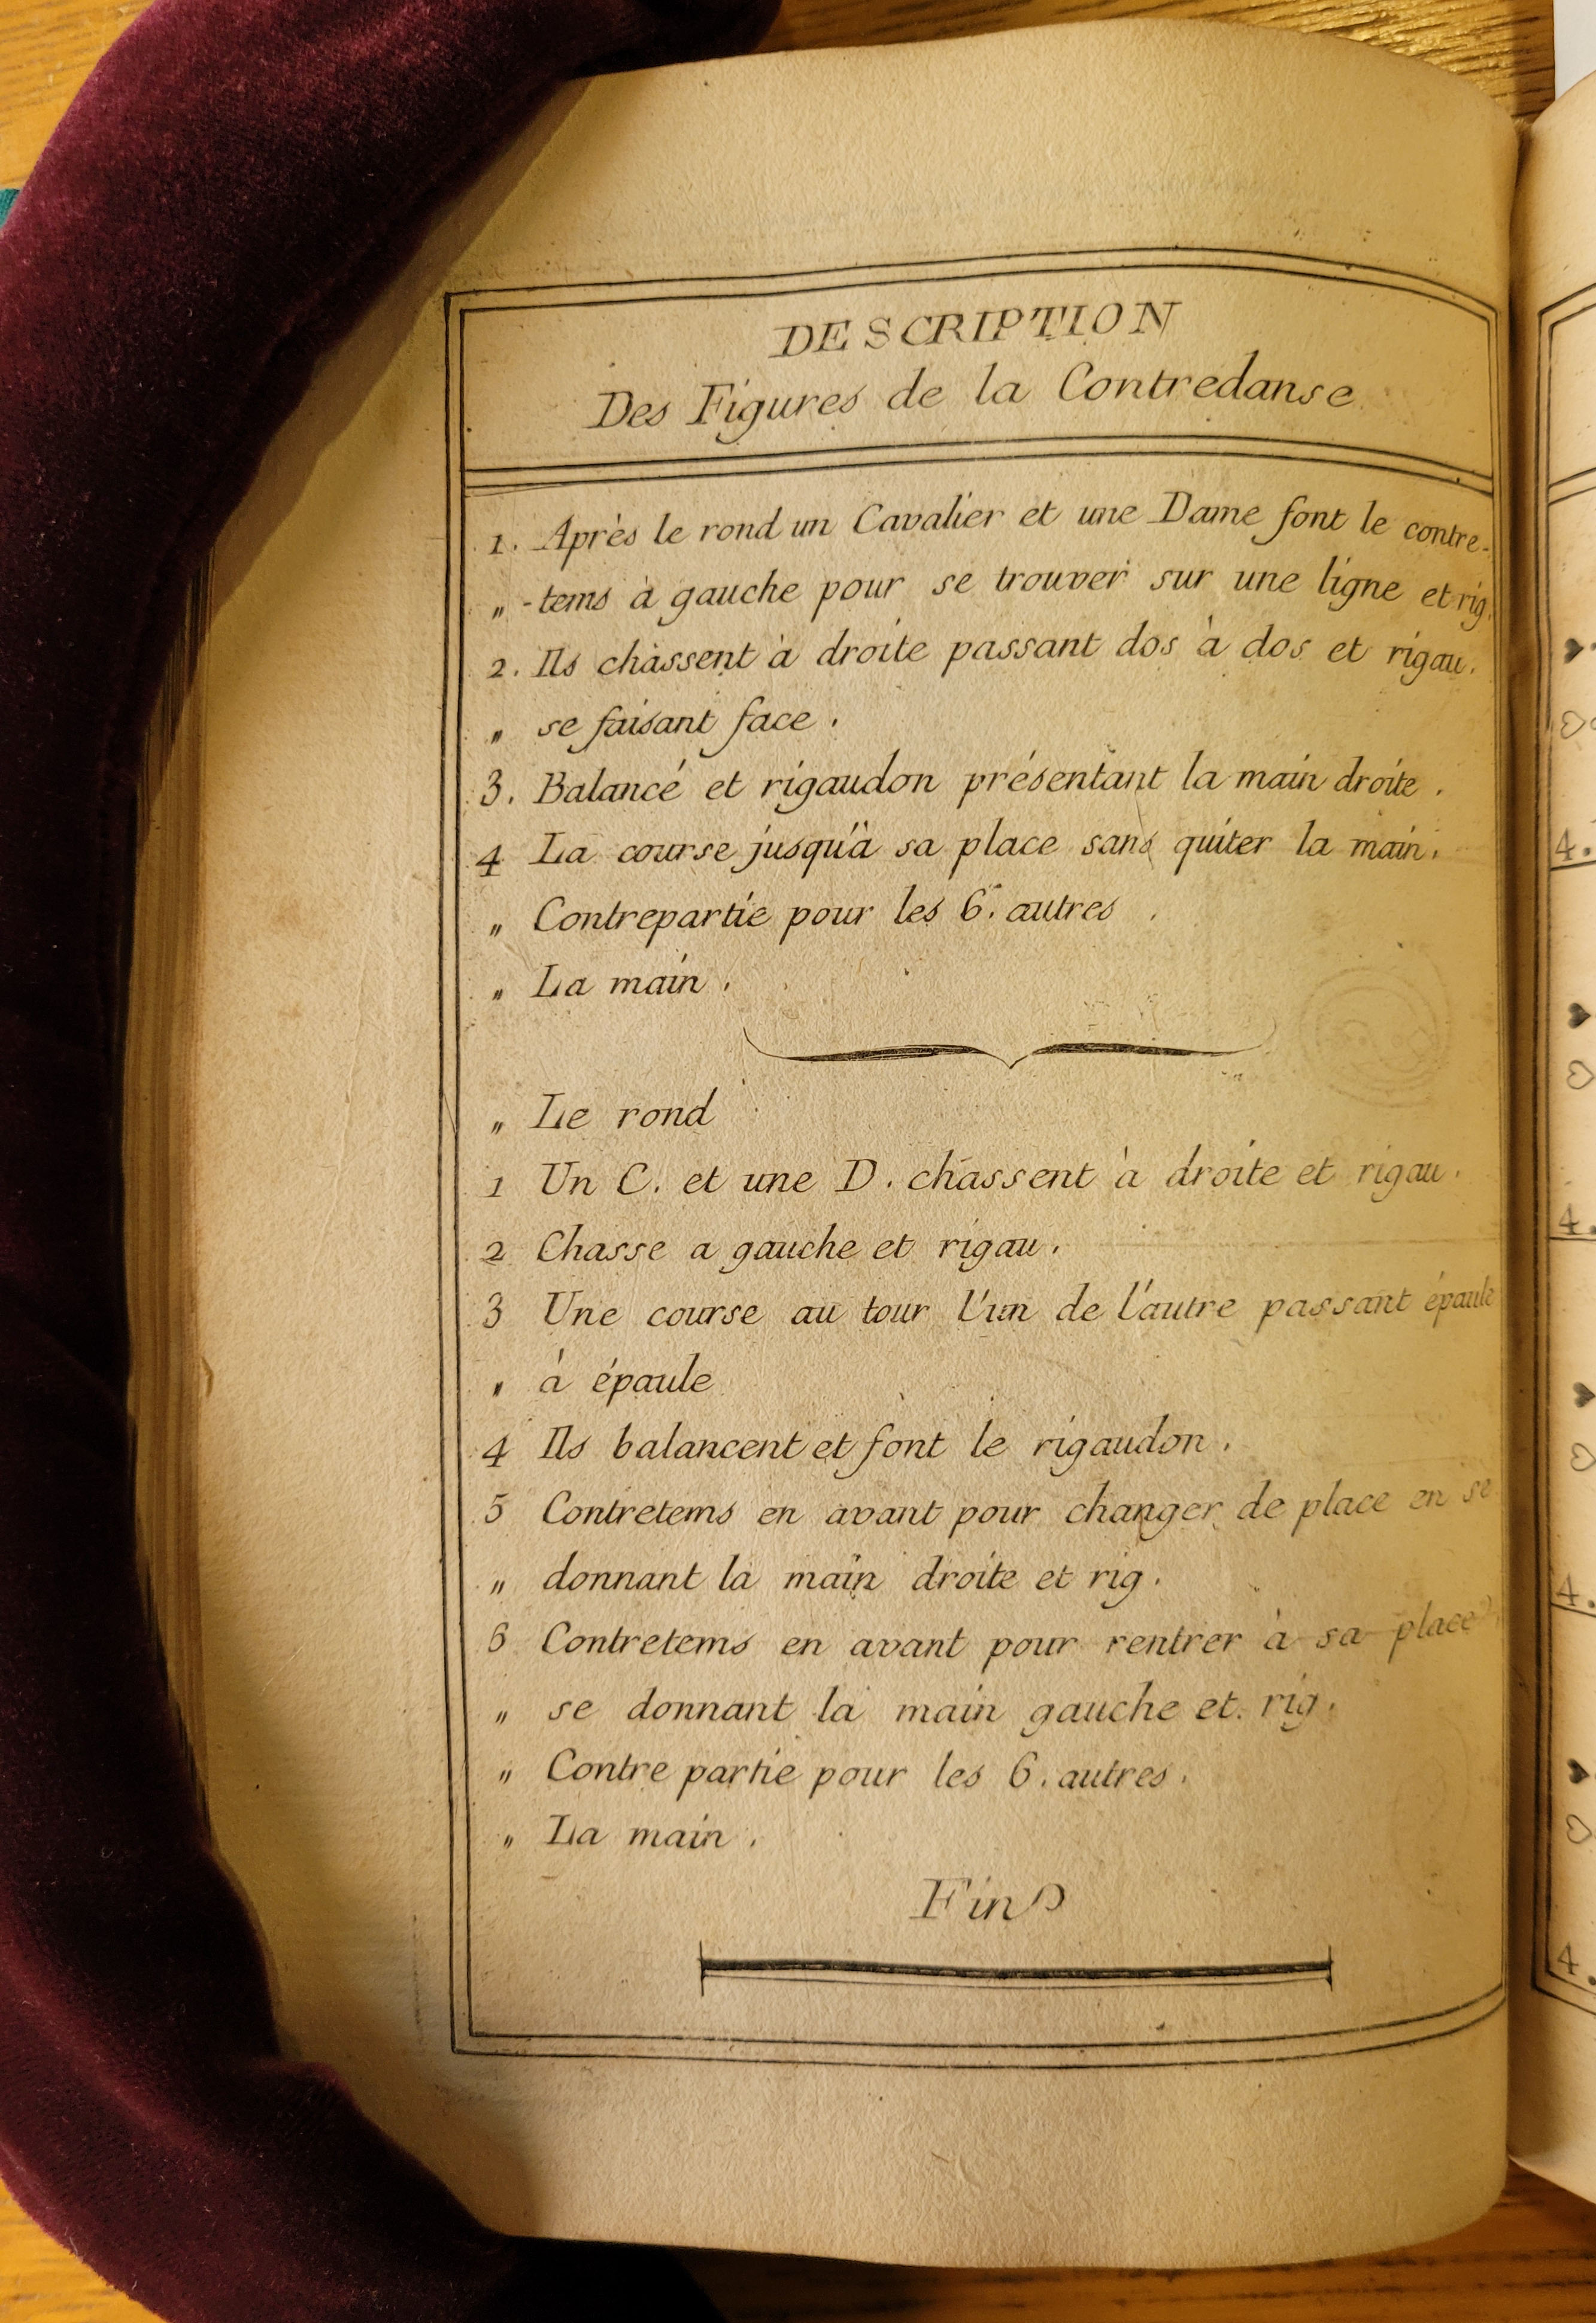 DESCRIPTION
Des Figures de la Contredanse
1. Après le rond un Cavalier et une Dame font le contre-
„ -tems à gauche pour se trouver sur une ligne et rig.
2. Ils chassent à droite passant dos à dos et rigau.
„ se faisant face.
3. Balancé et rigaudon présentant la main droite.
4 La course jusqu'à sa place sans quiter la main.
„ Contrepartie pour les 6. autres.
„ La main.
„ Le rond
1 Un C. et une D. chassent à droite et rigau.
2 Chasse a gauche et rigau.
3 Une course au tour l'un de l'autre passant épaule
„ à épaule
4 Ils balancent et font le rigaudon.
5 Contretems en avant pour changer de place en se
„ donnant la main droite et rig.
6 Contretems en avant pour rentrer à sa place
„ se donnant la main gauche et. rig.
„ Contre partie pour les 6. autres.
„ La main.
Fin
4.
4.
4.
4.